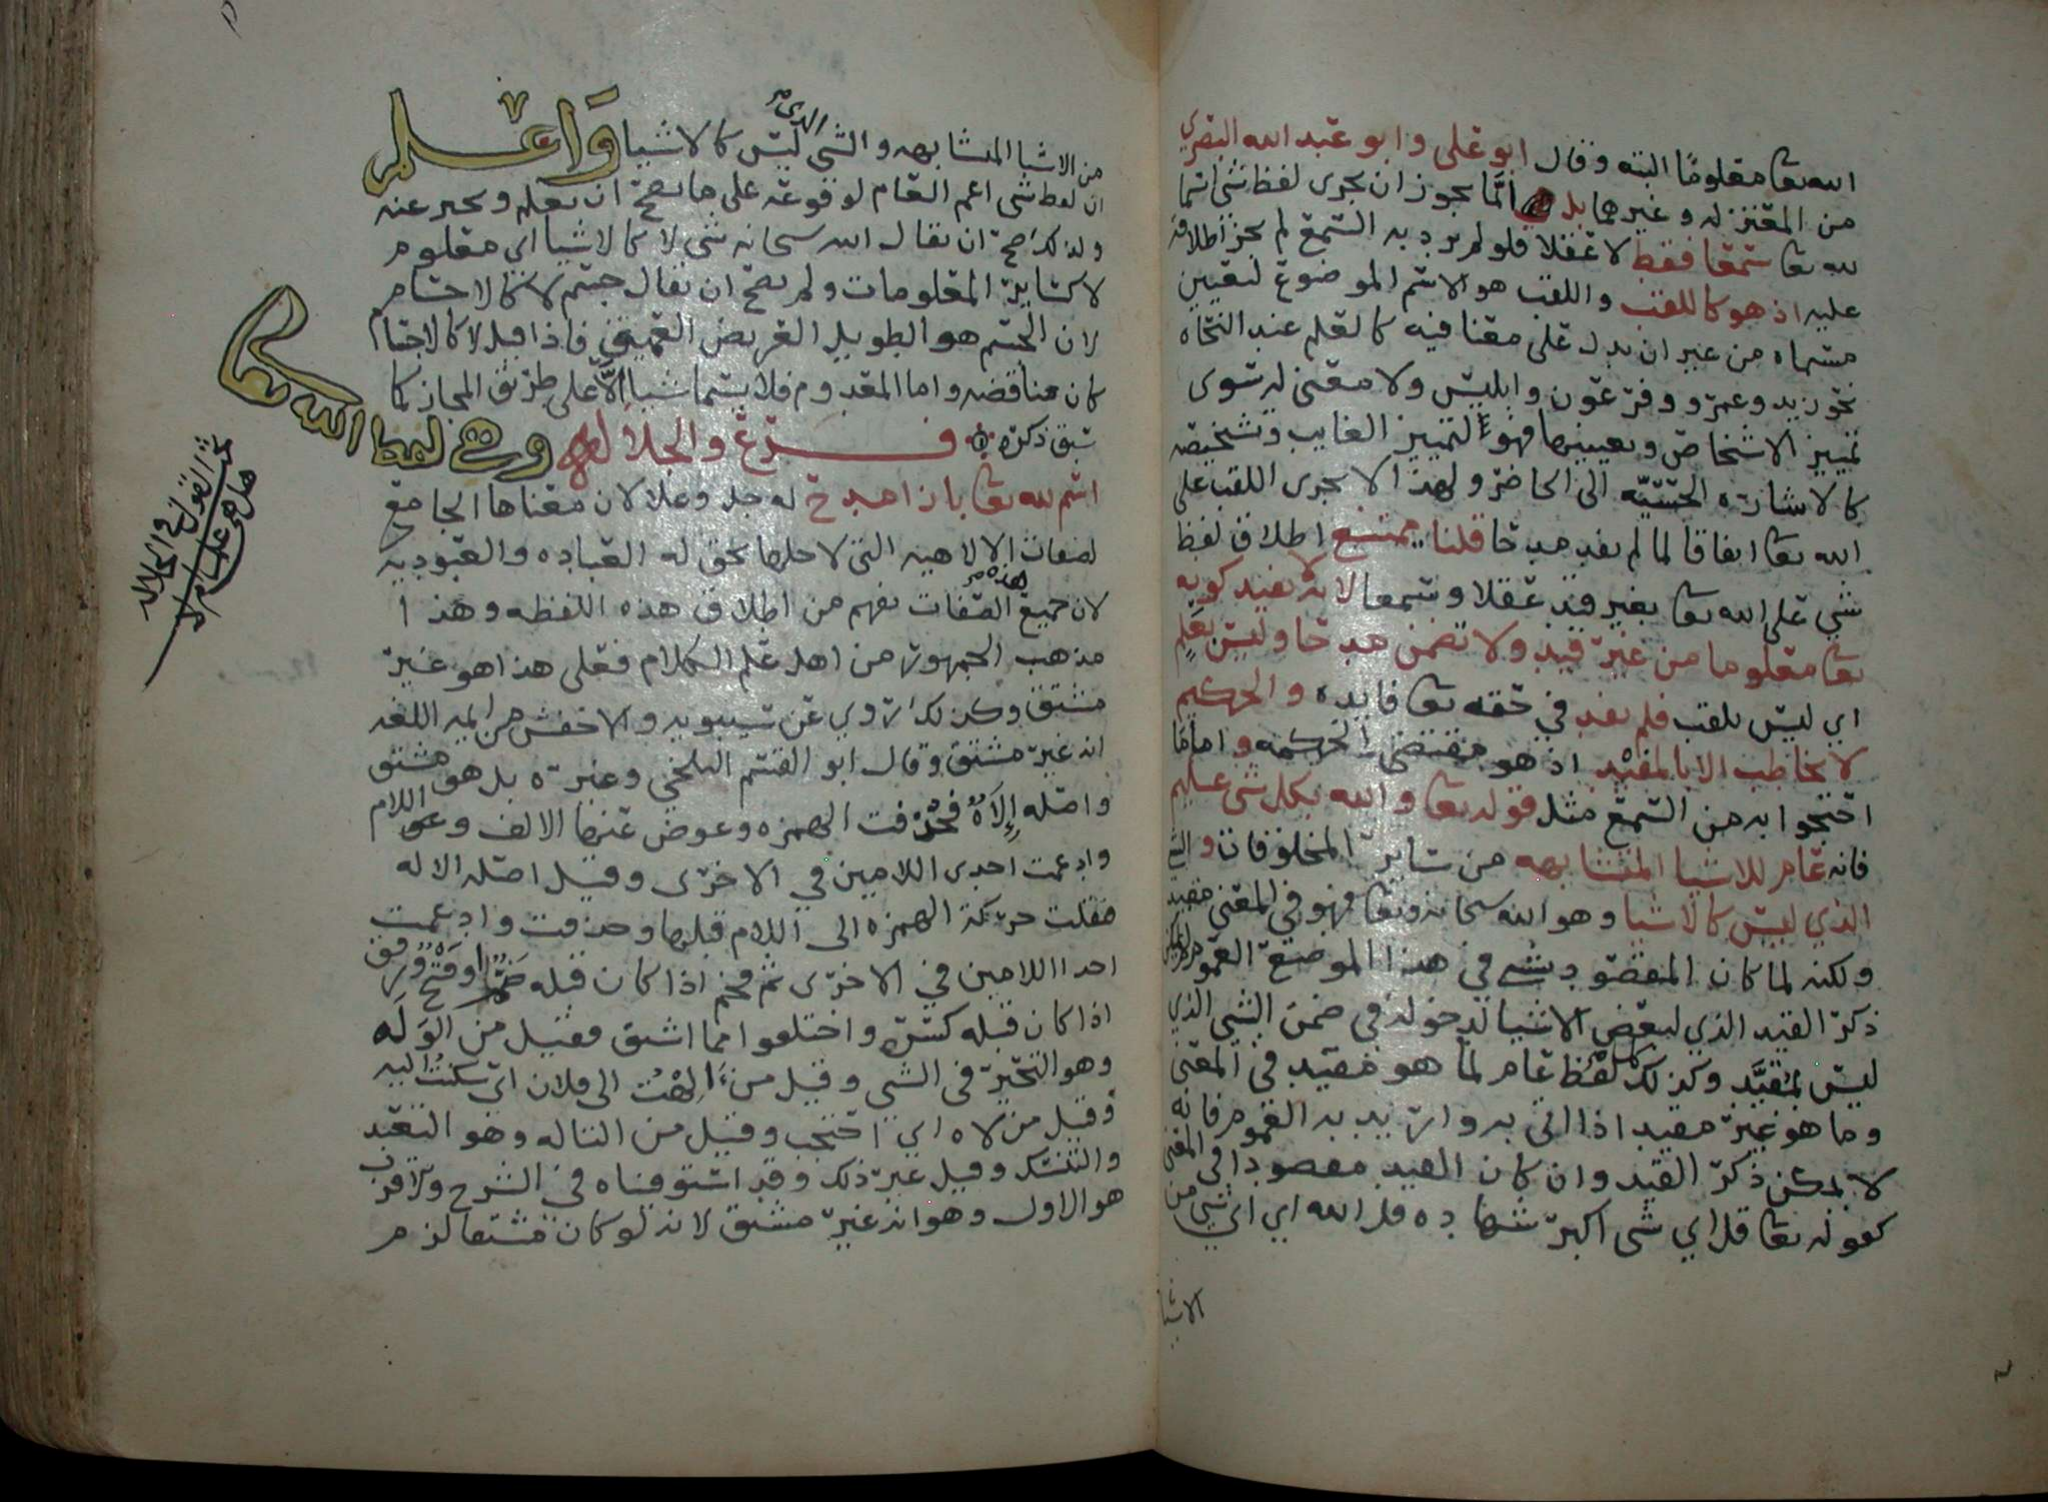 الله تعا معلومًا البته وقال ابو على وابو عبد الله البصري
من المعتزله وغيرهما بل انما يجوز ان يجرى لفظ شى اسما
لله تعا سمعا فقط لا عقلا فلو لم يرد به السمع لم يجز اطلاقه
عليه اذ هو كاللقب واللقب هو الاسم الموضوع لتعيين
مسماه من غير ان يدل على معنا فيه كالعلم عند النحاه
نحو زيد وعمرو وفرعون وابليس ولا معنى له سوى
تمييز الاشخاص وتعيينها فهو لتمييز الغايب وتشخيصه
كالاشاره الحسيّه الى الحاضر ولهذا لا يجرى اللقب على
الله تعا اتفاقا لما لم يفد مدحا قلنا يمتنع اطلاق لفظ
شي على الله تعا بغير قيد عقلا وسمعا لانه يفيد كونه
تعا معلوما من غير قيد ولا تضمن مدحا وليس بعلمٍ
اي ليس بلقب فلم يفد في حقه تعا فايده والحكيم
لا يخاطب الا بالمفيد اذ هو مقتضى الحكمه واما ما
احتجوا به من السمع مثل قوله تعا والله بكل شى عليم
فانه عام للاشيا المتشابهه من ساير المخلوقات و الشي
الذي ليس كالاشيا وهو الله سحانه وتعا فهو في المعنى مقيد
ولكنه لما كان المقصود بشي في هذا الموضع العموم لم يمكن
ذكر القيد الذي لبعض الاشيا لدخوله في ضمن الشي الذي
ليس بمُقيَّد وكذلك كل لفظ عام لما هو مقيد في المعنى
وما هو غير مقيد اذا اتى به واريد به العموم فانه
لا يمكن ذكر القيد وان كان القيد مقصودا في المعنى
كقوله تعا قل اي شى اكبر شهاده قل الله اي اي شي من
الاشيا
من الاشيا المتشابهه والشى الذي ليس كالاشيا وَاعْلم
ان لفظ شى اعم العام لوقوعه على ما يصح ان يعلم ويخبر عنه
ولذلك صح ان يقال الله سحانه شى لا كالاشيا اي معلوم
لا كساير المعلومات ولم يصح ان يقال جسم لا كالاجسام
لان الجسم هو الطويل العريض العميق فاذا قيل لا كالاجسام
كان مناقضه واما المعدوم فلا يسما شيا الّا على طريق المجاز كما
سبق ذكره فرع والجلاله وهي لفظ الله تعا
اسم لله تعا بازا مدح له جل وعلا لان معناها الجامع
لصفات الالاهيه التي لاجلها يحق له العباده والعبوديه
لان جميع هذه الصفات يفهم من اطلاق هذه اللفظه وهذا
مذهب الجمهور من اهل علم الكلام فعلى هذا هو غير
مشتق وكذلك روي عن سيبويه والاخفش من ايمه اللغه
انه غير مشتق وقال ابو القسم البلخي وغيره بل هو مشتق
واصله إِلَاهٌ فحُذفت الهمزه وعوض عنها الالف واللام
وادغمت احدى اللامين في الاخرى وقيل اصله الاله
فنقلت حركة الهمزه الى اللام قبلها وحذفت وادغمت
احدا اللامين في الاخرى ثم فخم اذا كان قبله ضم او فتح ورقق
اذا كان قبله كسر واختلفوا مما اشتق فقيل من الوَلَه
وهو التحير في الشي وقيل من اَلِهْتُ الى فلان اي سكنتُ اليه
وقيل من لاه اي احتجب وقيل من التاله وهو التعبد
والتنسك وقيل غير ذلك وقد استوفيناه في الشرح والاقرب
هو الاول وهو انه غير مشتق لانه لو كان مشتقا لزم
القول في الجلاله
هل هي علم ام لا